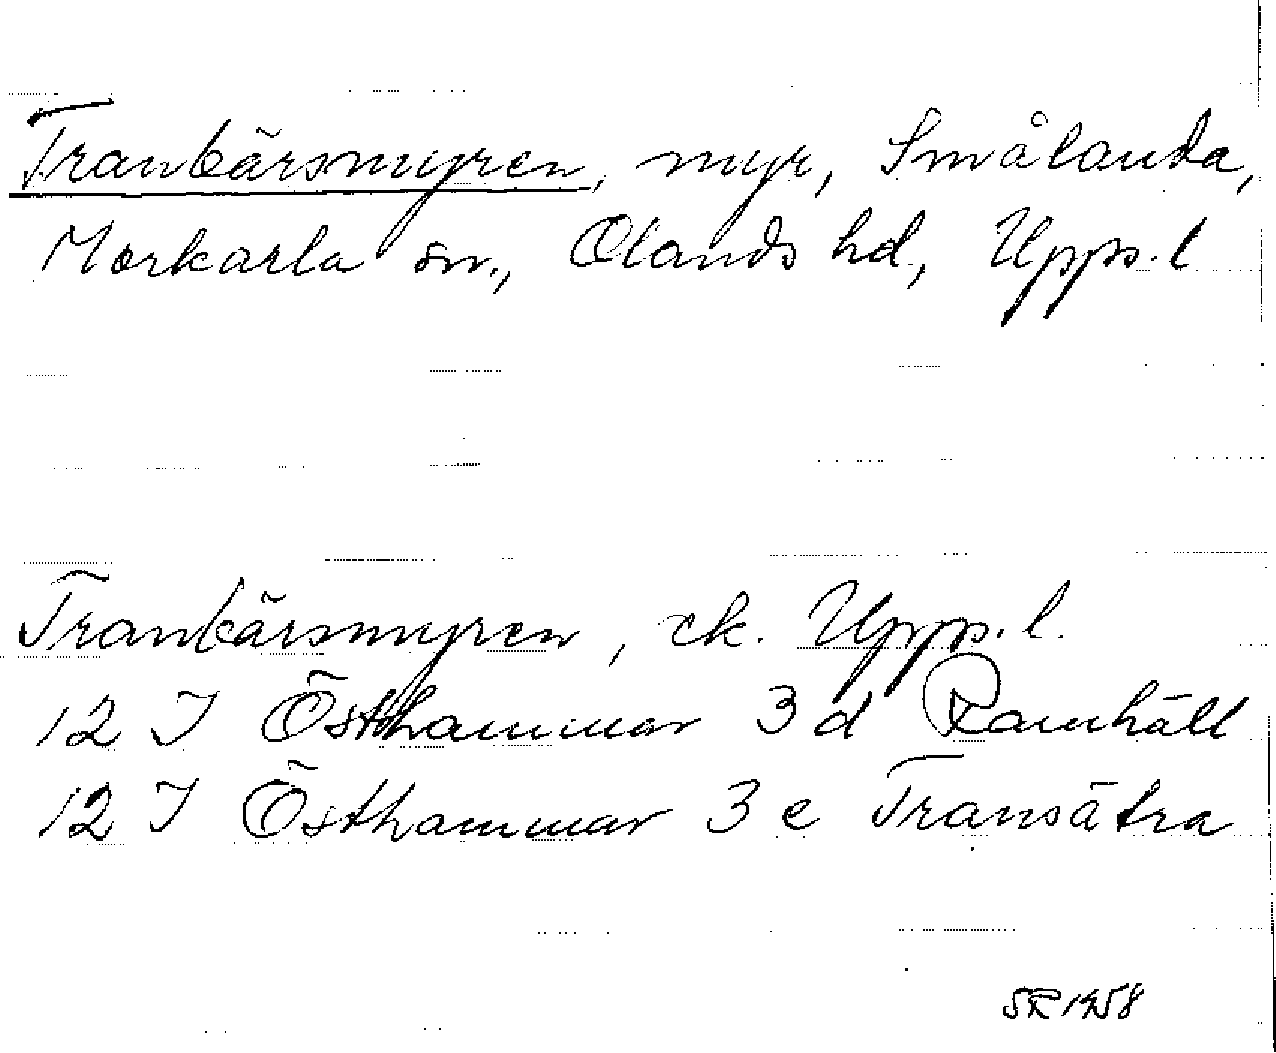 Trankärsmyren, myr, Smålanda,
Morkarla sn., Olands hd, Upps. l
Trankärsmyren, ek. Upps. l.
12 I Östhammar 3 d Ramhäll
12 I Östhammar 3 e Transätra
SR 1958